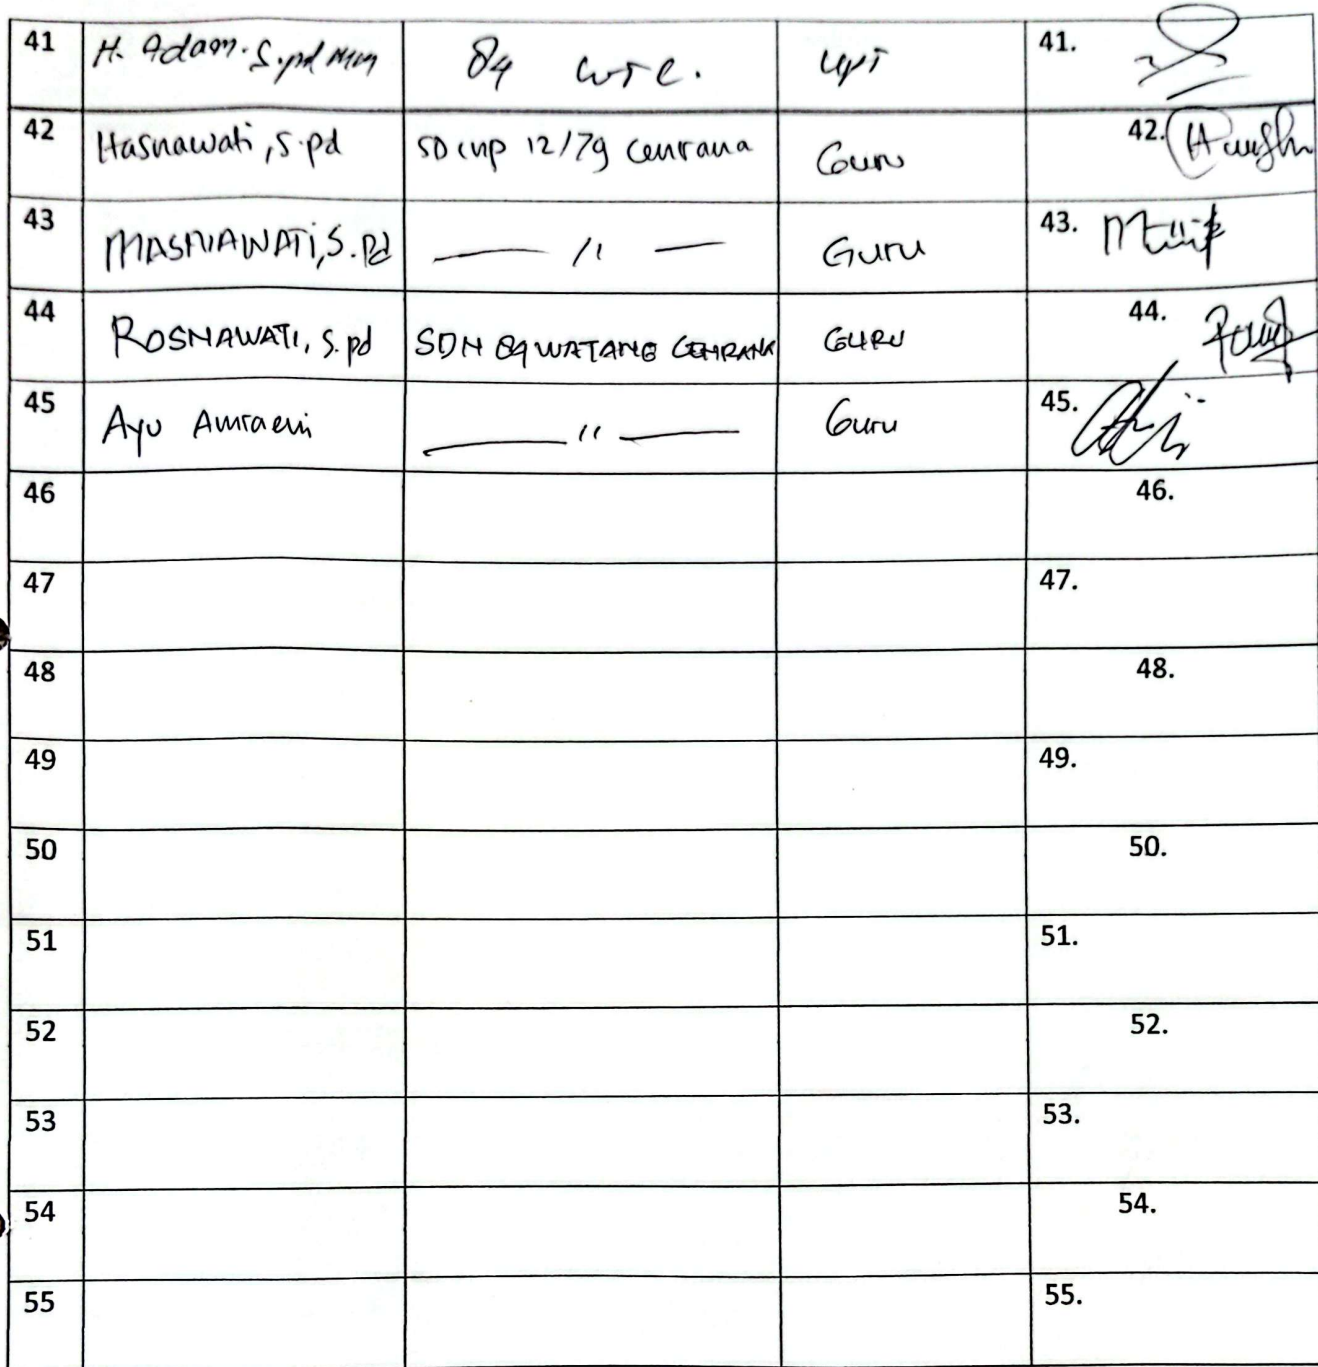 41 H. Adam. S.pd MM 84 WTC. UPT 41.
42 Hasnawati, S.pd SD inp 12/79 Cenrana Guru 42.
43 MASNIAWATi, S.Pd — 11 — Guru 43.
44 ROSNAWATI, S.pd SDN 89 WATANG CENRANA GURU 44.
45 Ayu Amraeni — 11 — Guru 45.
46 46.
47 47.
48 48.
49 49.
50 50.
51 51.
52 52.
53 53.
54 54.
55 55.